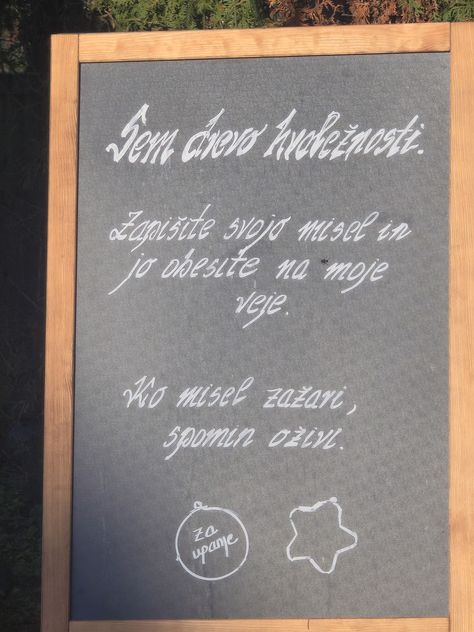 Sem drevo hvaležnosti.
Zapišite svojo misel in
jo obesite na moje
veje.
Ko misel zažari,
spomin oživi.
za
upanje